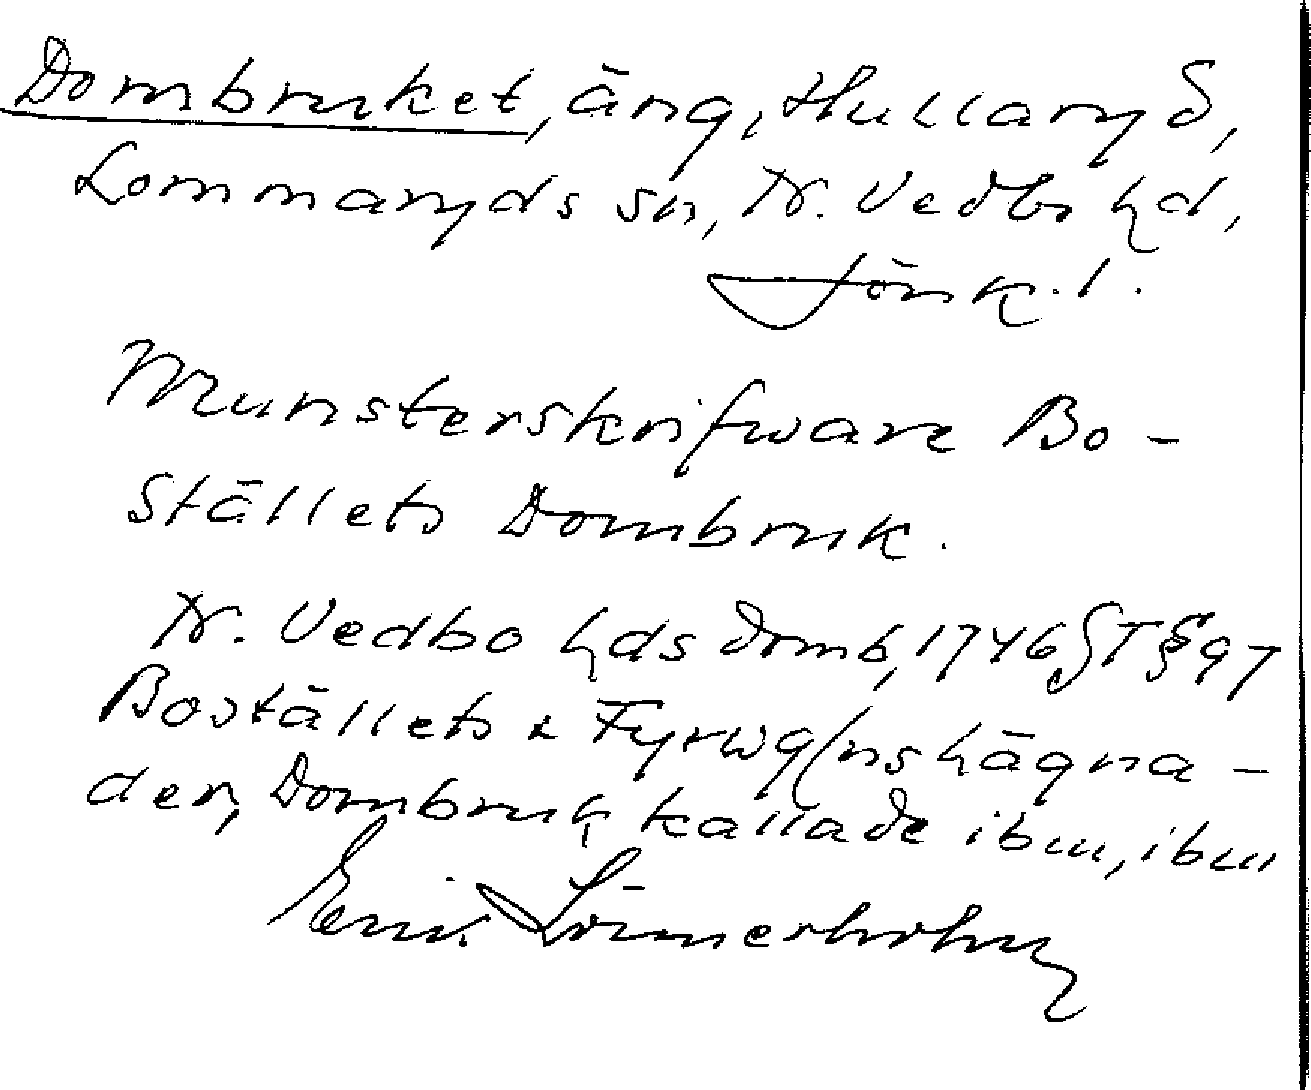 Dombruket, äng, Hullaryd,
Lommaryds sn, N. Vedbo hd,
Jönk. l.
Munsterskrifware Bo-
ställets Dombruk.
N. Vedbo hds domb, 1746 ST § 97
Boställets & hägna-
der, Dombruk kallade ibm, ibm